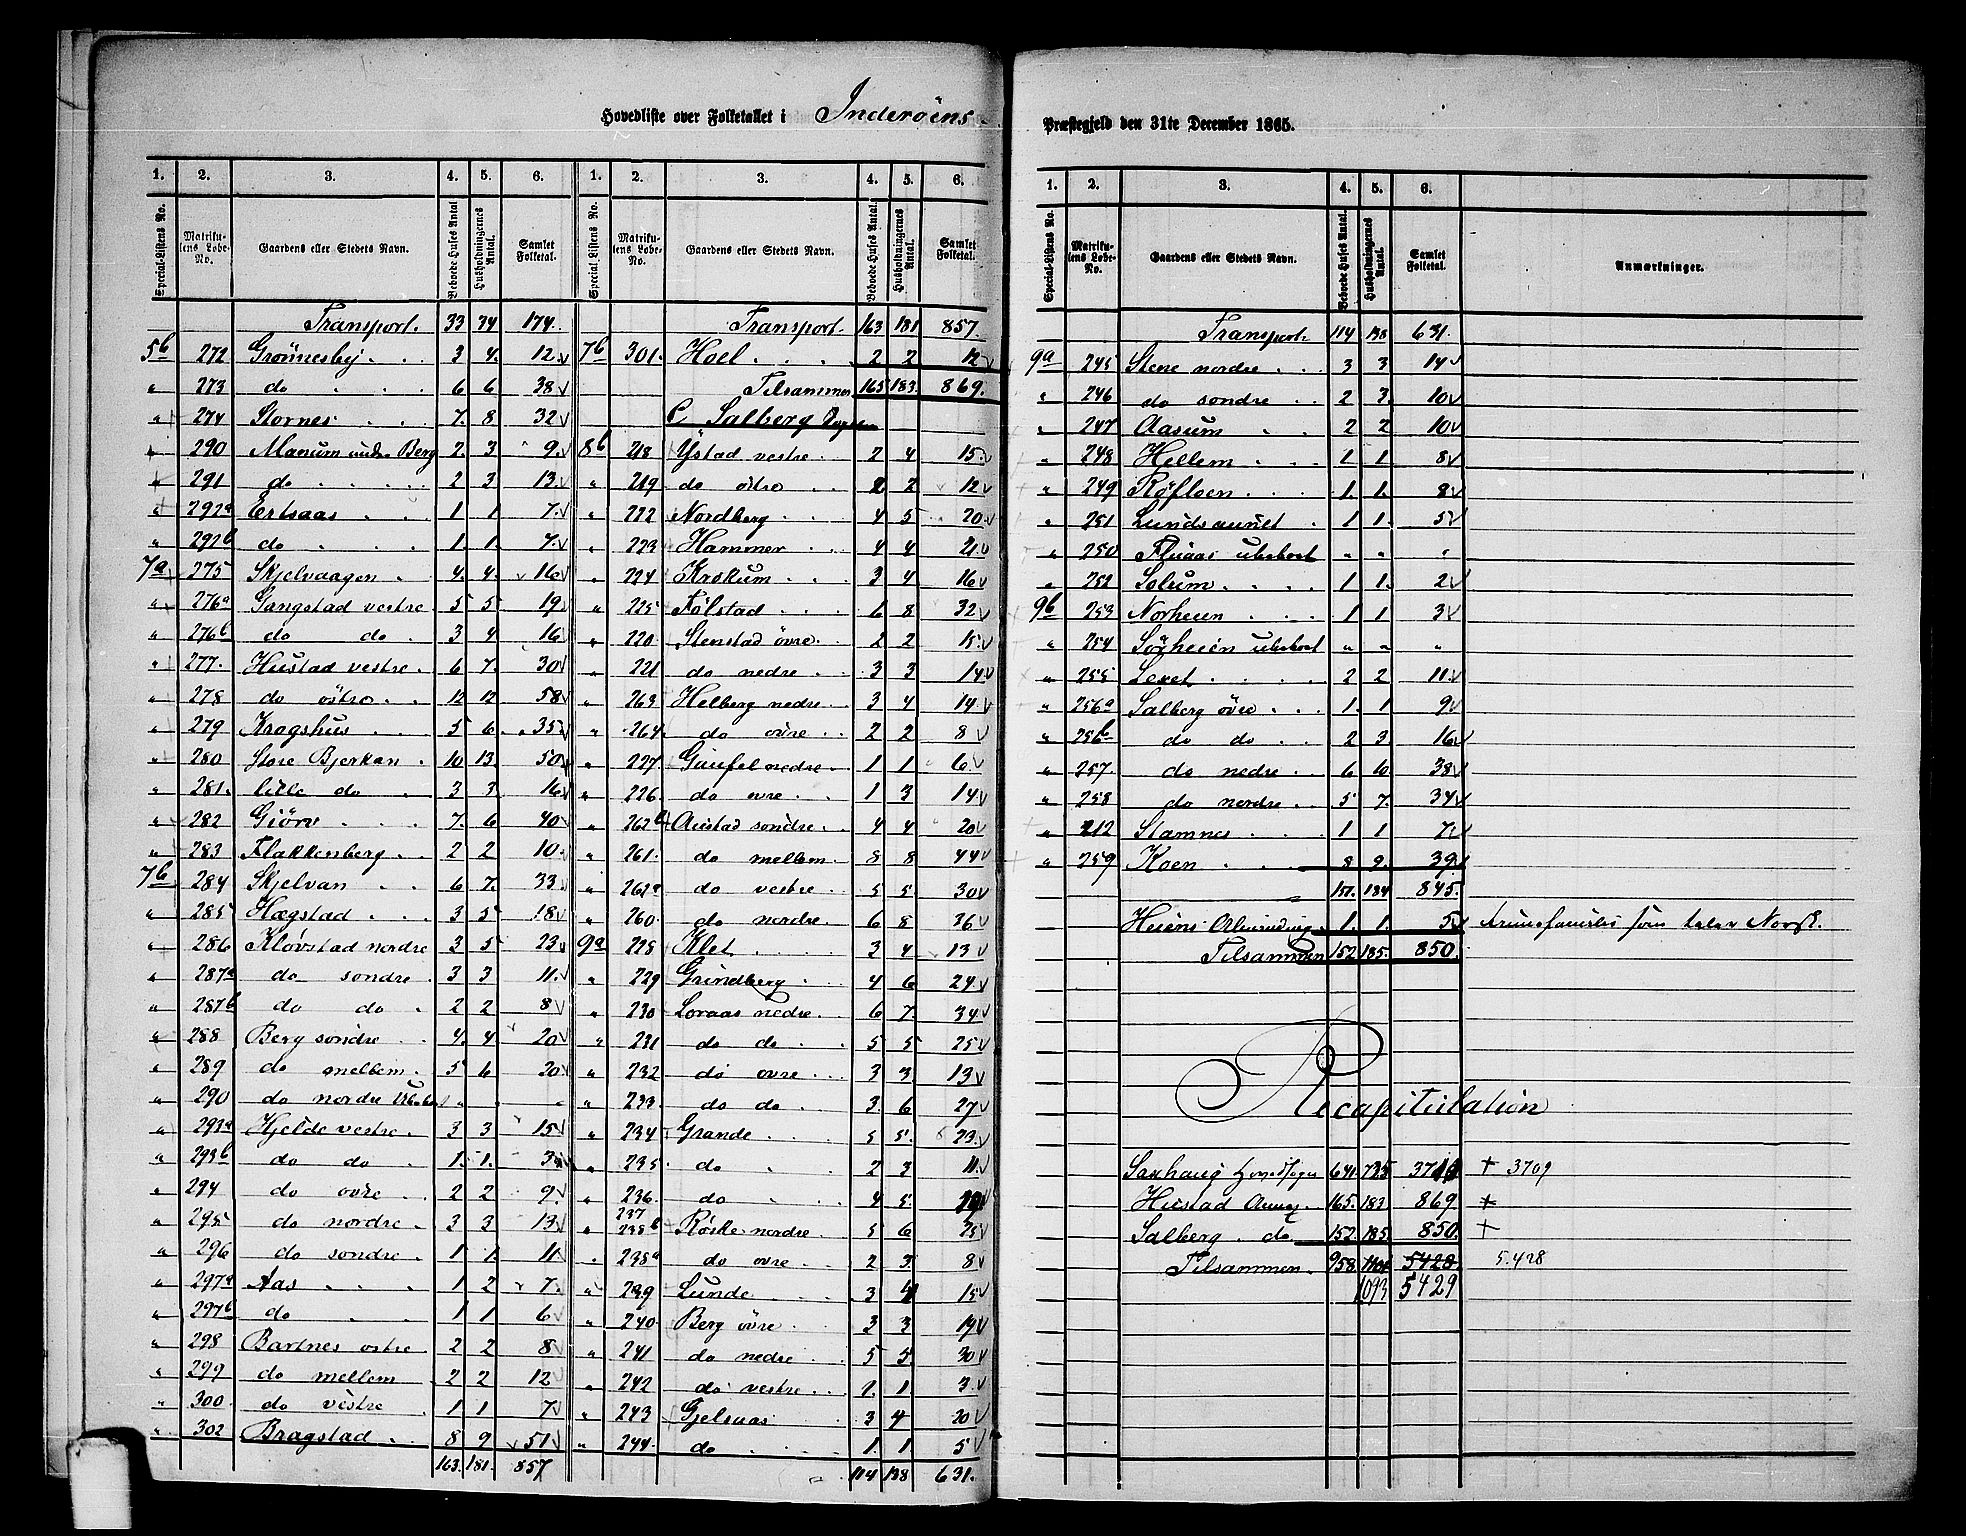 Hovedliste over Folketallet i Inderöens
Præstegjeld den 31te December 1865.
1. 2. 3. 4. 5. 6. 1. 2. 3. 4. 5. 6.
Special-Listens No. Matrikulens Løbe-No. Gaardens eller Stedets Navn. Beboede Huses Antal Husholdningernes Antal. Samlet Folketal. Special Listens No. Matrikulens Løbe-No. Gaardens eller Stedets Navn. Beboede Huses Antal. Husholdningernes Antal. Samlet Folketal.
Transport. 33 34 174.
5b 272 Grönnesby. 3 4. 12.
" 273 do 6 6 38
" 274 Stornes. 7. 8 32
" 290 Manum under Berg 2. 3 9.
" 291 do 2 3 13.
" 292a Ertsaas 1 1 7.
" 292b do 1. 1. 7.
7a 275 Skjelvaagen 4. 4. 16
" 276a Gangstad vestre 5 5 19
" 276b do do 3 4 16
" 277. Hustad vestre. 6 7. 30
" 278 do östre. 12 12 58
" 279 Kragshus 5 6 35
" 280 Store Bjerkan 10 13. 50
" 281. lille do 3 3. 16
" 282 Giörv 7. 6 40
" 283 Flakkenberg 2 2 10.
7b 284 Skjelvan 6 7. 33.
" 285 Hægstad 3 5 18
" 286 Klövstad nordre 3 5 23
" 287a do söndre. 3 3 11.
" 287b do do 2 2 8
" 288 Berg söndre 4. 4 20
" 289 do mellem. 5 6 30
" 290 do nordre " " "
" 293a Hjelde vestre. 3 3 15
" 293b do do 1. 1. 3
" 294 do övre 2 2 9.
" 295 do nordre. 3 3 13
" 296 do söndre 1 1. 11.
" 297a Aas 1 2 7.
" 297b do 1 1 6
" 298 Bartnes östre 2 2 8
" 299 do mellem 2 2 12
" 300 do vestre 1 1 7
" 302 Bragstad 8 9 51
163. 181. 857
Transport. 163 181 857.
7b 301. Hoel 2 2 12
Tilsammen 165 183. 869.
C Salberg Sogn
8b 218 Ystad vestre. 2 4 15.
" 219 do östre 2 2 12
" 222 Nordberg 4 5 20.
" 223 Hammer 4 4 21
" 224 Krokum 3 4 16
" 225 Fölstad 6 8 32
" 220 Stenstad övre. 2 2 15.
" 221 do nedre 3 3 14
" 263 Helberg nedre 3 4 14
" 264. do övre 2 2 8
" 227 Guufel nedre 1 1 6
" 226. do övre 1 3 14
" 262b Austad söndre. 4 4 20
" 261. do mellem. 8 8 44
" 262a do vestre 5 5. 30
" 260. do nordre 6 8 26
9a 228 Klet 3 4 13
" 229 Grindberg 4 6 24
" 230 Loraas nedre. 6 7. 34
" 231 do do 5 5 25
" 232 do övre 3 3. 13
" 233. do do 3. 6 27
" 234 Grande 5 5. 23.
" 235. do 2 3 11.
" 236. do 4 5.
" 237 238b Röske nordre 5 6 25
" 238a do övre 2 3. 8
" 239 Lunde 3 4 15
" 240 Berg övre 3 3 19
" 241 do nedre 5 5. 30
" 242 do vestre 1. 1. 3
" 243 Gjelsaas 3 4 20
" 244. do 1. 1. 5
114 138 631.
1. 2. 3. 4. 5. 6.
Special-Listens No. Matrikulens Løbe-No. Gaardens eller Stedets Navn. Beboede Huses Antal. Husholdningernes Antal. Samlet Folketal. Anmærkninger.
Transport. 114 138 631.
9a 245 Stene nordre 3 3 14
" 246 do söndre 2 3. 10
" 247 Aasum 2 2 10
" 248 Hellem 1 1. 8
" 249 Röfloen 1. 1. 8
" 251 Lundsaunet 1 1. 5
" 250 Fluaas ubeboet " " "
" 252 Solum 1 1. 2
9b 253 Norheien 1 1 3
" 254 Sörheien ubeboet " " "
" 255 Lexet 2 2 11
" 256a Salberg övre 1. 1 9
" 256b do do 2 3. 16
" 257. do nedre 6 10. 38
" 258 do nordre 5 7. 34
" 212 Stamnes 1 1 7.
" 259 Koen 8 9. 39
151. 184 845.
Heiens Almindin 1. 1. 5 som taler Norsk.
Tilsammen 152 185. 850.
Recapitulation
Saxhaug Hovedsogn 641. 725 + 3709
Hustad Annex. 165. 183 869 +
Salberg do 152. 185. 850. +
Tilsammen. 958. 5428 5.428
1093 5429